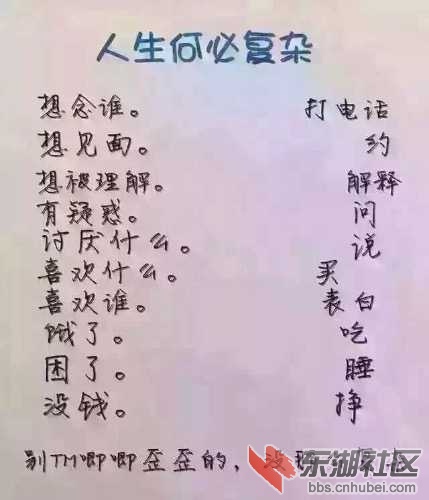 人生何必复杂
想念谁。 打电话
想见面。 约
想被理解。 解释
有疑惑。 问
讨厌什么。 说
喜欢什么。 买
喜欢谁。 表白
饿了。 吃
困了。 睡
没钱。 挣
别TM唧唧歪歪的,没
东湖社区
bbs.cnhubei.com